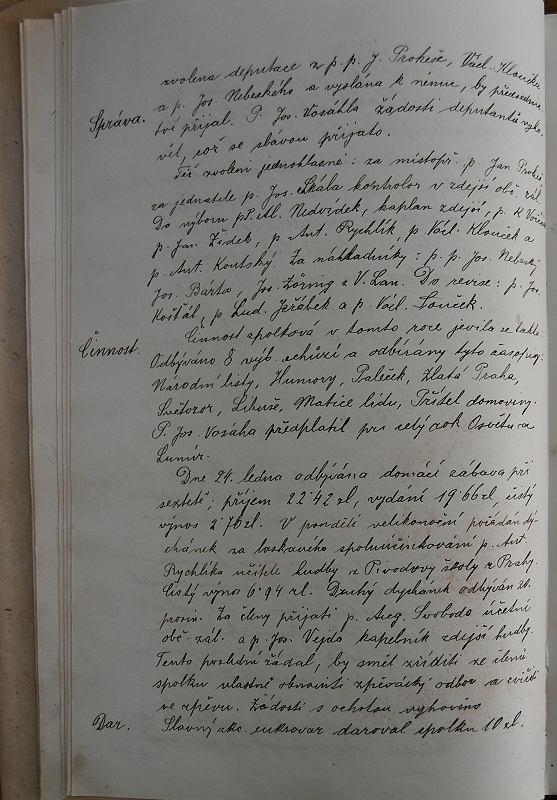 zvolena deputace z p. p. J. Prokeše, Václ. Kloučka
a p. Jos. Nebeského a vyslána k němu, by předsednic-
Správa. tví přijal. P. Jos. Vosáhla žádosti deputantů vyho-
věl, což se slávou přijato.
Též zvoleni jednohlasně: za místopř. p. Jan Prokeš
za jednatele p. Jos. Skála kontrolor v zdejší obč. zál.
Do výboru p. Nedvídek, kaplan zdejší, p. K.
p. Jan Židek, p. Ant. Rychlík, p. Václ. Klouček a
p. Ant. Koutský. Za náhradníky: p. p. Jos. Nebeský
Jos. Bárta, Jos. Zörnig z V. Lan. Do revise: p. Jos.
Košťál, p. Lud. Jeřábek a p. Václ. Souček.
Činnost. Činnost spolková v tomto roce jevila se takto.
Odbýváno 8 výb. schůzí a odbírány tyto časopisy.
Národní listy, Humory, Paleček, Zlatá Praha,
Světozor, Libuše, Matice lidu, Přítel domoviny.
P. Jos. Vosáhla předplatil pro celý rok Osvětu a
Lumír.
Dne 24. ledna odbývána domácí zábava při
sextetě; příjem 22·42 zl, vydání 19·66 zl, čistý
výnos 2·76 zl. V pondělí velikonoční pořádán dý-
chánek za laskavého spoluúčinkování p. Ant.
Rychlíka učitele hudby z Pivodovy školy z Prahy.
Čistý výnos 6·94 zl. Druhý dýchánek odbýván 26.
prosin. Za členy přijati p. Aug. Svoboda účetní
obč. zál. a p. Jos. Vejda kapelník zdejší hudby.
Tento poslední žádal, by směl zříditi ze členů
spolku vlastně obnoviti zpěvácký odbor a cvičiti
ve zpěvu. Žádosti s ochotou vyhověno.
Dar. Slavný akc. cukrovar daroval spolku 10 zl.